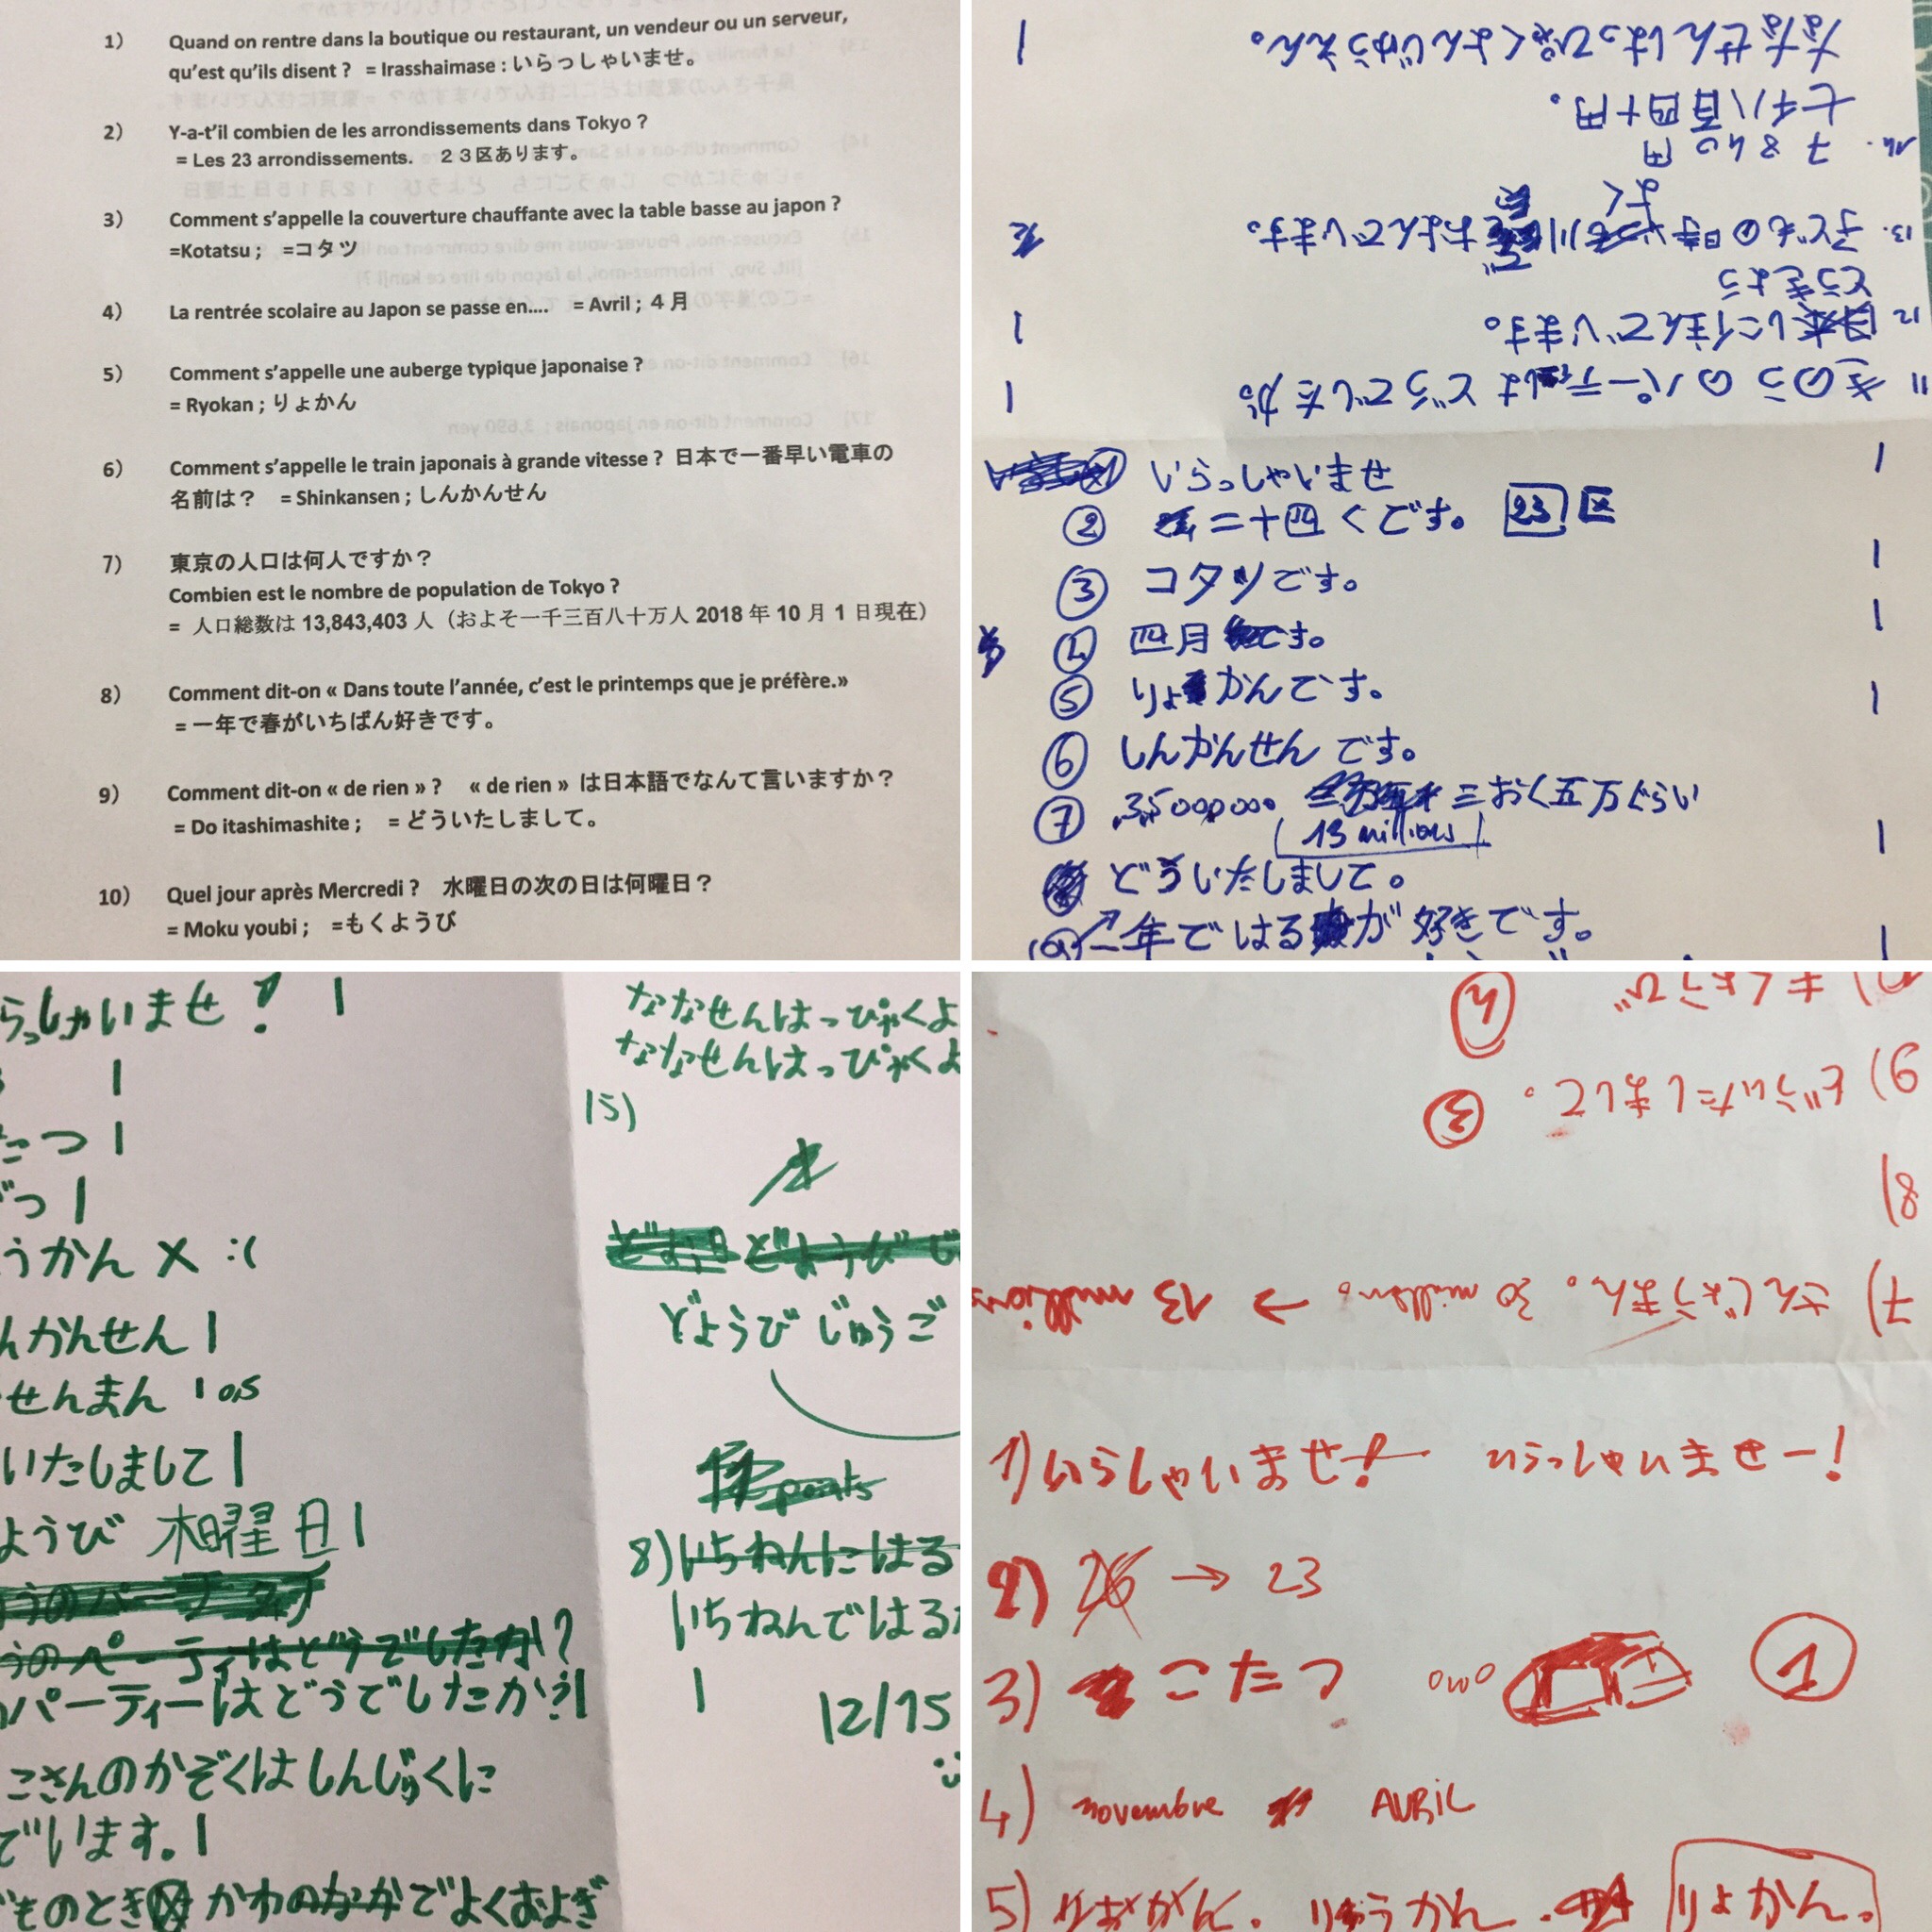 1) Quand on rentre dans la boutique ou restaurant, un vendeur ou un serveur,
qu'est qu'ils disent ? = Irasshaimase : いらっしゃいませ。
2) Y-a-t'il combien de les arrondissements dans Tokyo ?
= Les 23 arrondissements. ２３区あります。
3) Comment s'appelle la couverture chauffante avec la table basse au japon ?
=Kotatsu ; =コタツ
4) La rentrée scolaire au Japon se passe en.... = Avril ; ４月
5) Comment s'appelle une auberge typique japonaise ?
= Ryokan ; りょかん
6) Comment s'appelle le train japonais à grande vitesse ? 日本で一番早い電車の
名前は？ = Shinkansen ; しんかんせん
7) 東京の人口は何人ですか？
Combien est le nombre de population de Tokyo ?
= 人口総数は 13,843,403 人（およそ一千三百八十万人 2018 年 10 月 1 日現在）
8) Comment dit-on « Dans toute l'année, c'est le printemps que je préfère.»
= 一年で春がいちばん好きです。
9) Comment dit-on « de rien » ? « de rien » は日本語でなんて言いますか？
= Do itashimashite ; = どういたしまして。
10) Quel jour après Mercredi ? 水曜日の次の日は何曜日？
= Moku youbi ; =もくようび
11 きのうのパーティはどうでしたか。 1
12 にほんでいます。 1
とうきょう
13. 子どもの時 川 およんでいます。
よく
14. 7840円
七千八百四十円。
ななせんはっぴゃくよんじゅうえん。 1
いらっしゃいませ 1
② 二十四くです。 23 区
③ コタツです。 1
④ 四月 です。 1
⑤ りょかんです。 1
⑥ しんかんせん です。
⑦ 35000000 三おく五万ぐらい
13 millions 1
どういたしまして。
一年ではるが好きです。 1
らっしゃいませ！ 1
1
たつ 1
がつ 1
うかん × :(
んかんせん 1
せんまん 1 0,5
いたしまして 1
ようび 木曜日 1
うのパーティはどうでしたか？
パーティーはどうでしたか？ 1
こさんのかぞくはしんじゅくに
でいます。 1
ものとき かわのなかでよくおよぎ
ななせんはっぴゃくよ
ななせんはっぴゃくよ
15)
どようび じゅうご
11 points
8) いちねんにはる
いちねんではる
1
12/15
10) もくようび ④
9) どういたしまして。 ③
8)
7) さんじょうまん。 30 millions。 → 13 millions
1) いらしゃいませ！ いらっしゃいませー！
2) 26 → 23
3) こたつ owo ①
4) novembre AVRIL
5) りょうかん . りょかん。